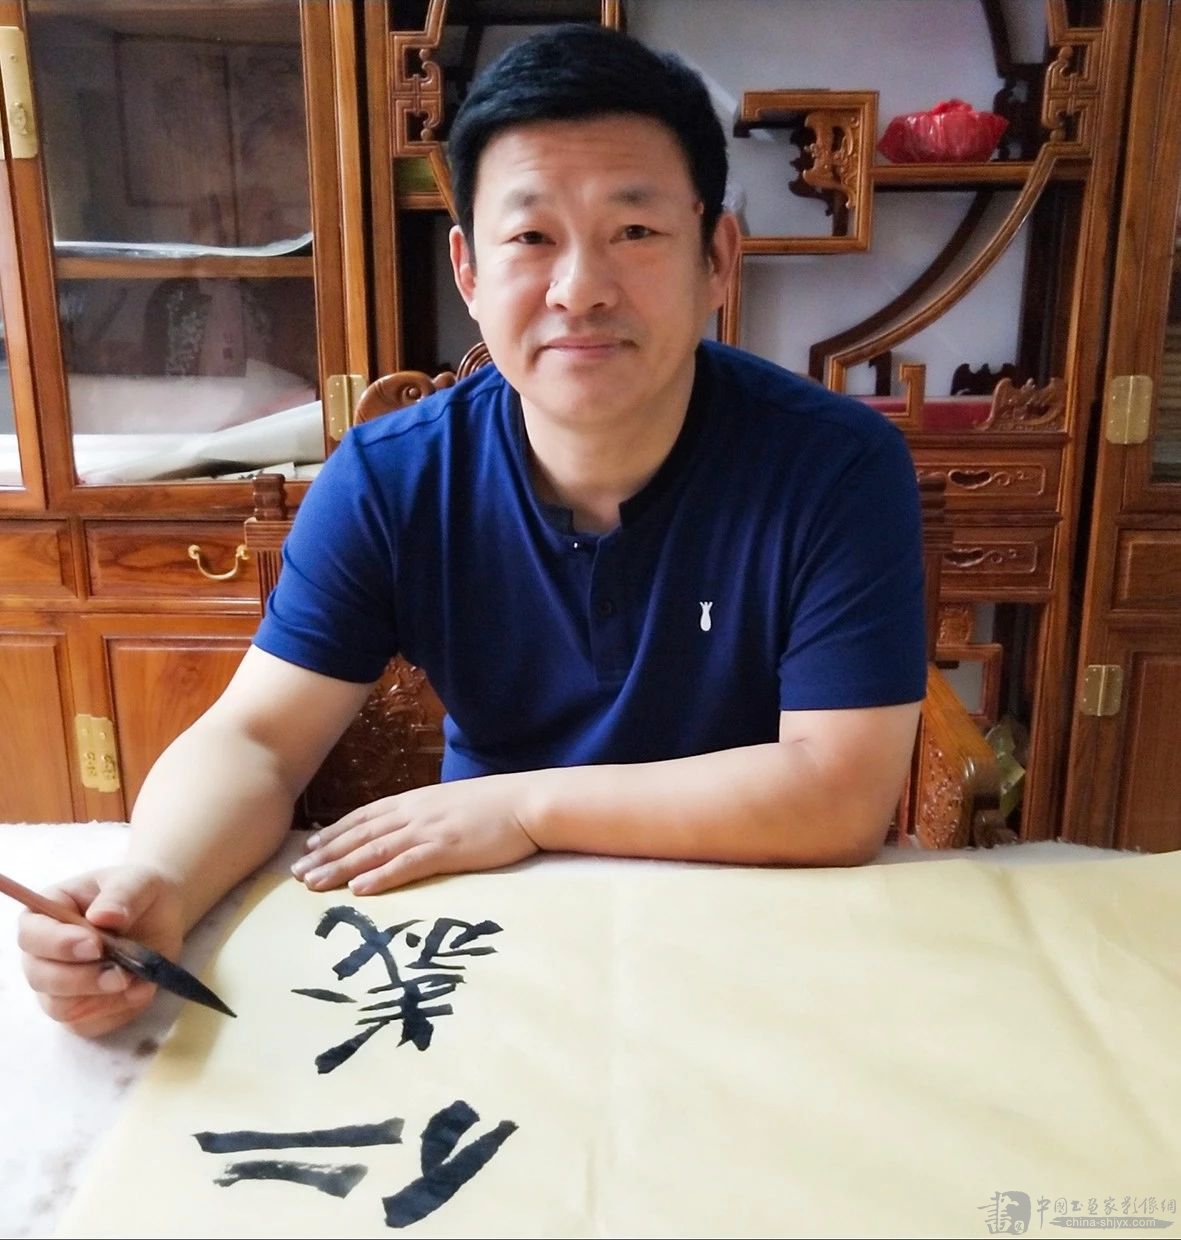 仁義
書
中国书画家影像網
china-shjyx.com